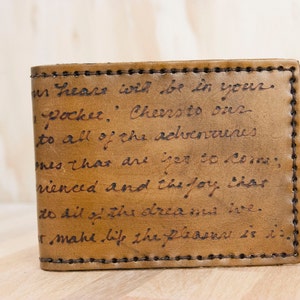 heart will be in your
pocket." Cheers to our
to all of the adventures
ones that are yet to come,
rienced and the joy that
to all of the dreams we
make life the pleasure it is